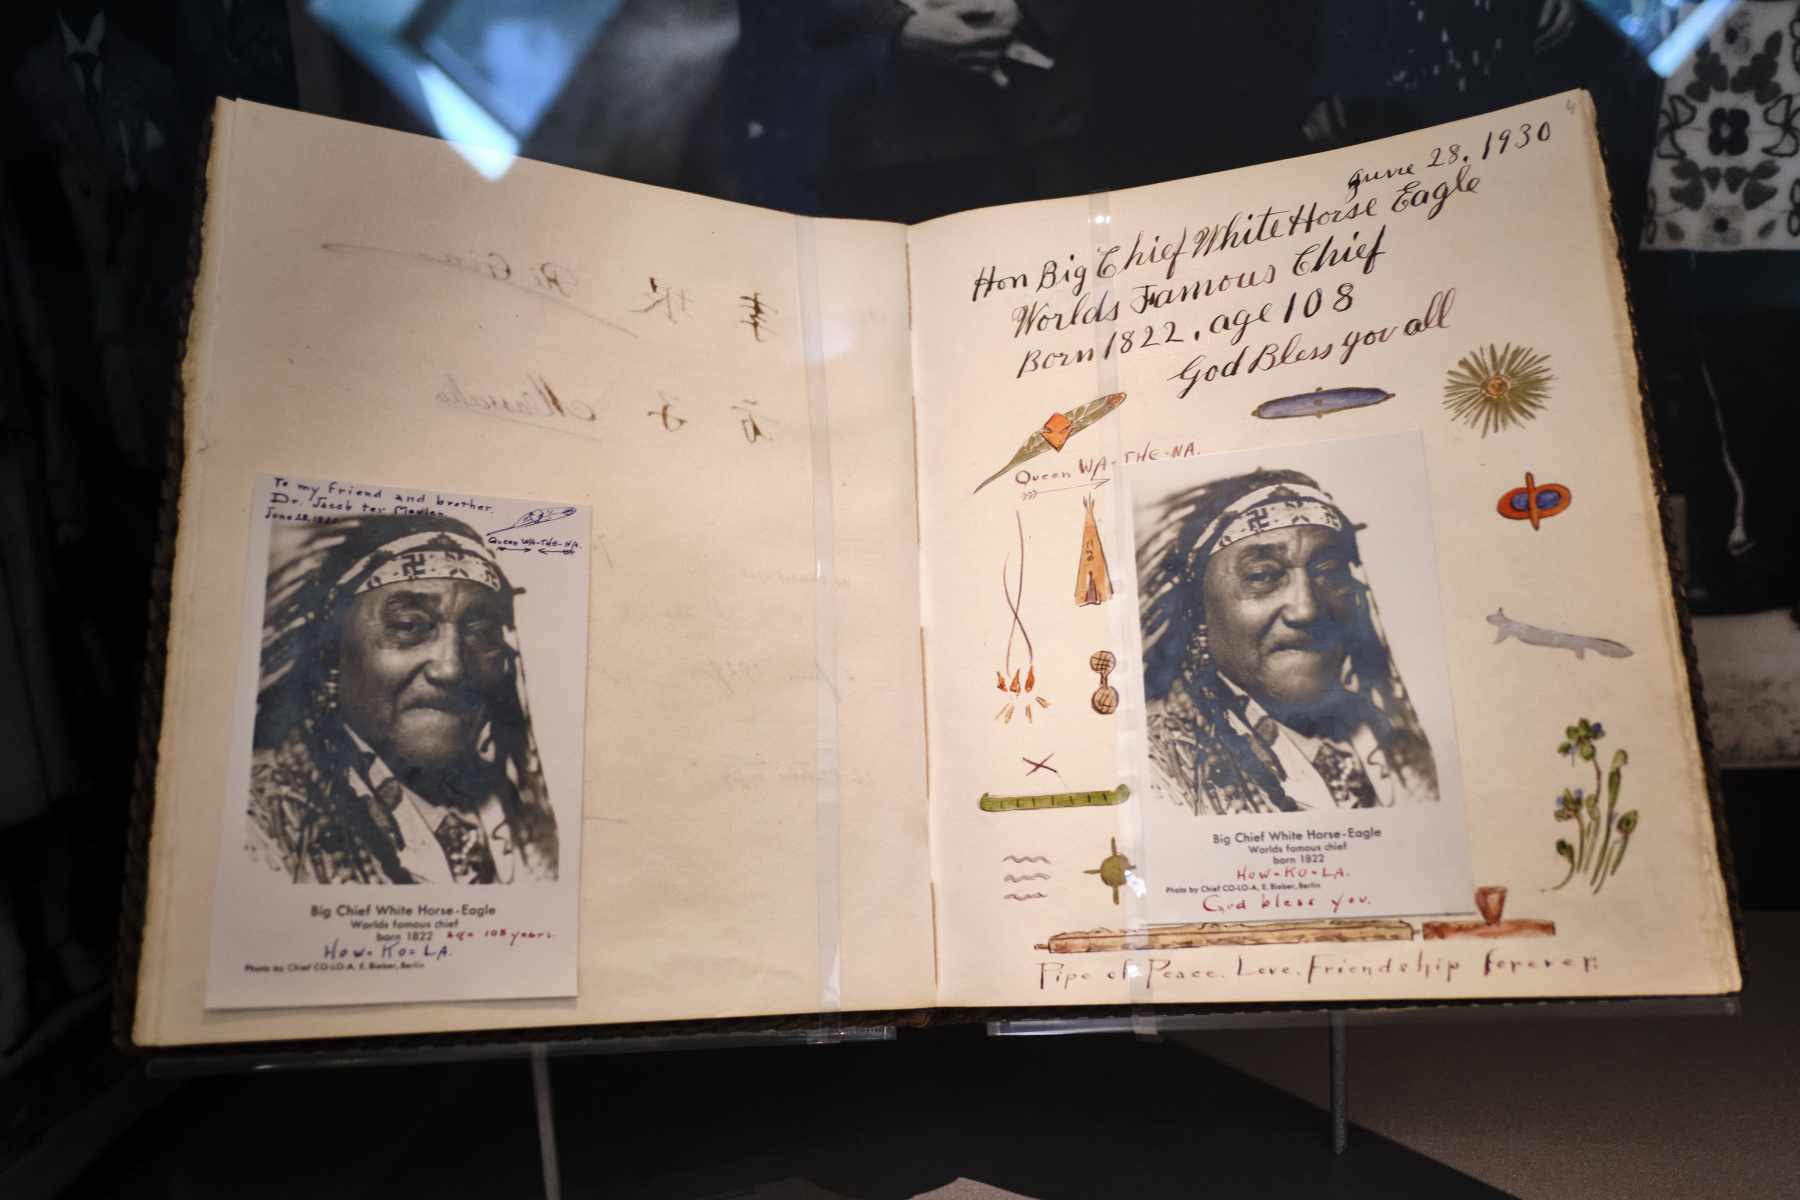 To my Friend and brother.
Dr. Jacob ter Meulen.
June 28. 1930
Queen WA-THE-NA.
Big Chief White Horse-Eagle
Worlds famous chief
born 1822 age 108 years.
HOW-KO-LA.
Photo by Chief CO-LO-A, E. Bieber, Berlin
4
June 28. 1930
Hon Big Chief White Horse Eagle
Worlds Famous Chief
Born 1822. age 108
God Bless you all
Queen WA-THE-NA.
Big Chief White Horse-Eagle
Worlds famous chief
born 1822
HOW-KO-LA.
Photo by Chief CO-LO-A, E. Bieber, Berlin
God bless you.
Pipe of Peace. Love. Friendship forever.